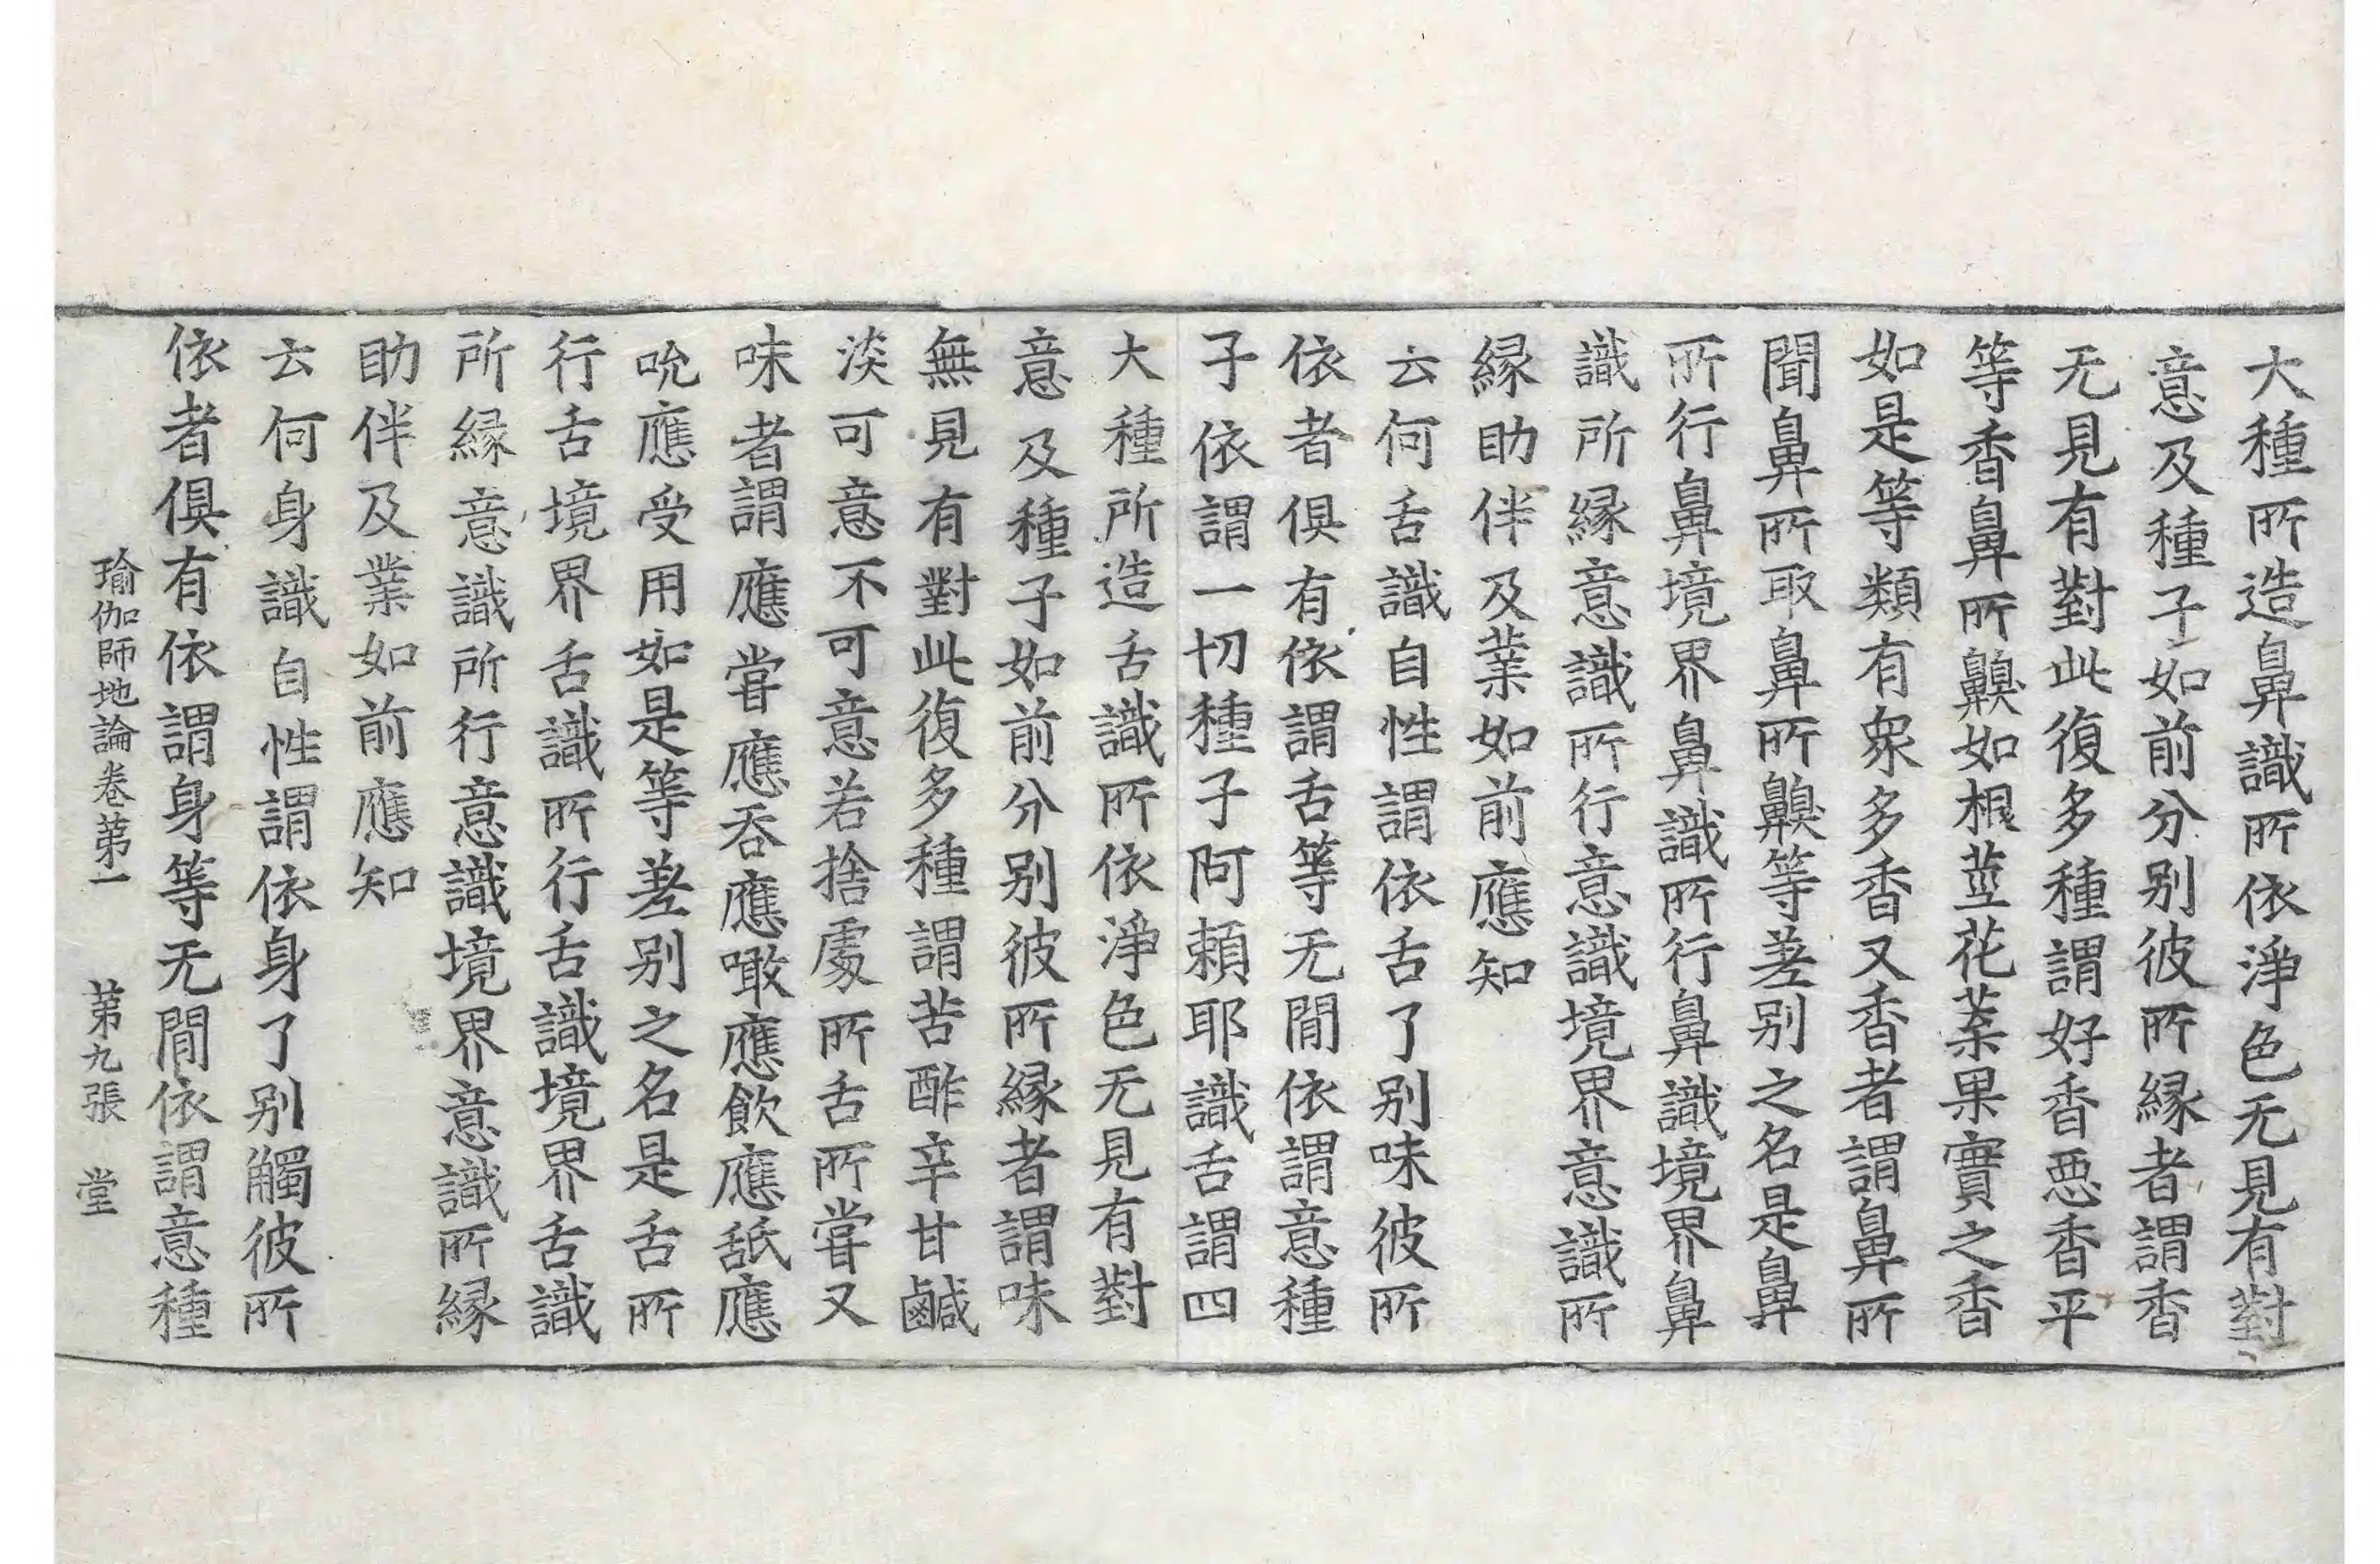 大種所造鼻識所依淨色无見有對
意及種子如前分别彼所縁者謂香
无見有對此復多種謂好香惡香平
等香鼻所齅如根莖花葉果實之香
如是等類有衆多香又香者謂鼻所
聞鼻所取鼻所齅等差别之名是鼻
所行鼻境界鼻識所行鼻識境界鼻
識所縁意識所行意識境界意識所
縁助伴及業如前應知
云何舌識自性謂依舌了别味彼所
依者俱有依謂舌等无間依謂意種
子依謂一切種子阿頼耶識舌謂四
大種所造舌識所依淨色无見有對
意及種子如前分别彼所縁者謂味
無見有對此復多種謂苦酢辛甘鹹
淡可意不可意若捨處所舌所嘗又
味者謂應嘗應吞應噉應飲應舐應
吮應受用如是等差别之名是舌所
行舌境界舌識所行舌識境界舌識
所縁意識所行意識境界意識所縁
助伴及業如前應知
云何身識自性謂依身了别觸彼所
依者俱有依謂身等无間依謂意種
瑜伽師地論卷第一 第九張 堂